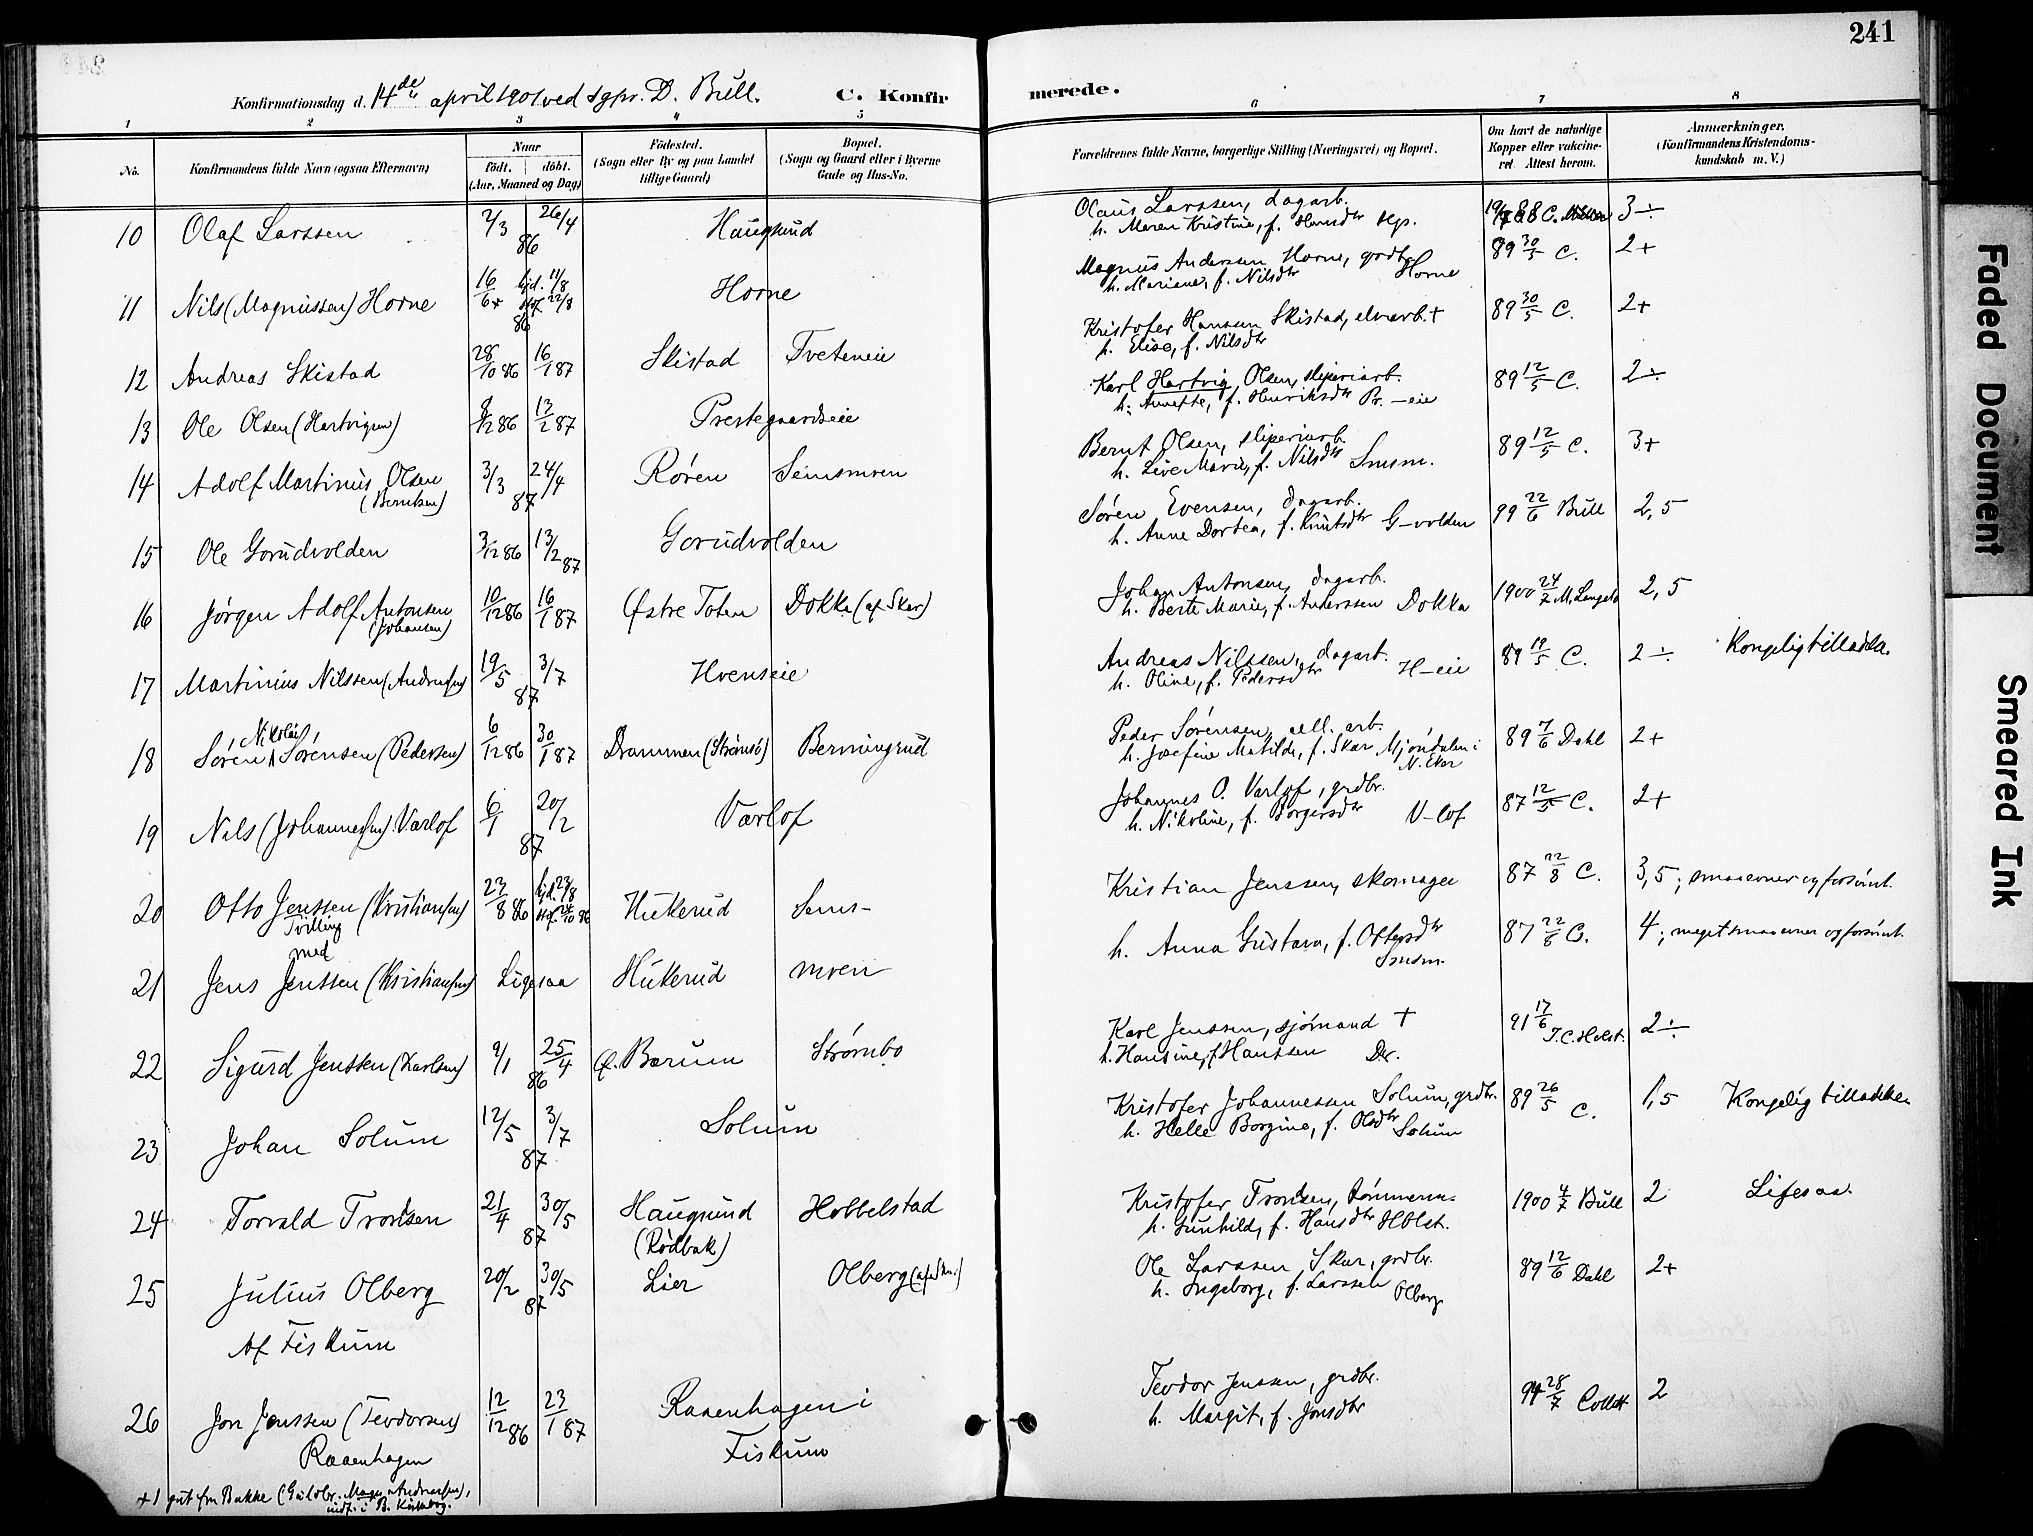 241
Konfirmationsdag d. 14de april 1901 ved sgpr. D. Bull.
C. Konfirmerede.
1 2 3 4 5 6 7 8
No. Konfirmandens fulde Navn (ogsaa Efternavn) Naar født. døbt. (Aar, Maaned og Dag) Fødested. (Sogn eller By og paa Landet tillige Gaard) Bopæl. (Sogn og Gaard eller i Byerne Gade og Hus-No. Forældrenes fulde Navne, borgerlige Stilling (Næringsvei) og Bopæl. Om havt de naturlige Kopper eller vakcineret. Attest herom. Anmærkninger. (Konfirmandens Kristendomskundskab m. V.)
10 Olaf Larssen 2/3 26/4 86 Haugsund Olaus Larssen, dagarb. 3÷
h. Maren Kristine, f. Hansdtr
11 Nils (Magnussen) Horne 16/6 86 hjd. 11/8 stf. 22/8 Horne Magnus Andersen Horne, grdbr. 89 30/5 C. 2+
h. Mariane, f. Nilsdtr Horne
12 Andreas Skistad 28/10 86 16/1 87 Skistad Tveteneie Kristofer Hanssen Skistad, elvearb. + 89 30/5 C. 2+
h. Elise, f. Nilsdtr
13 Ole Olsen (Hartvigsen) 9/12 86 13/2 87 Prestegaardseie Karl Hartvig Olsen, sliperiarb. 89 12/5 C. 2÷
h. Annette, f. Henriksdtr Pr.-eie
14 Adolf Martinius Olsen (Berntsen) 3/3 24/4 87 Røren Semsmoen Bernt Olsen, sliperiarb. 89 12/5 C. 3+
h. Live Marie, f. Nilsdtr Smsm.
15 Ole Gorudvolden 3/12 86 13/2 87 Gorudvolden Søren Evensen, dagarb. 99 22/6 Bull 2,5
h. Anne Dortea, f. Knutsdtr G-volden
16 Jørgen Adolf Antonsen (Johansen) 10/12 86 16/1 87 Østre Toten Dokka (af Skar) Johan Antonsen, dagarb. 1900 24/7 2,5
h. Berte Marie, f. Anderssen Dokka
17 Martinius Nilssen (Andreassen) 19/5 3/7 87 Hvenseie Andreas Nilssen, dagarb. 89 19/5 C. 2÷ Kongelig tilladelse.
h. Oline, f. Pedersdtr H-eie
18 Søren Nikolai Sørensen (Pedersen) 6/12 86 30/1 87 Drammen (Strømsø) Berningrud Peder Sørensen, cell. arb. 89 7/6 Dahl 2+
h. Josefine Matilde, f. Skar Mjøndalen i N. Eker
19 Nils (Johannessen) Varlof 6/1 20/2 87 Varlof Johannes O. Varlof, grdbr. 87 12/5 C. 2+
h. Nikoline, f. Borgersdtr V-lof
20 Otto Jenssen (Kristiansen) 23/8 86 hjd. 23/8 stf. 24/10 86 Hukerud Sems- Kristian Jenssen, skomager 87 22/8 C. 3,5; smaa evner og forsømt.
Tvilling med
21 Jens Jenssen (Kristiansen) Ligesaa Hukerud moen h. Anna Gustava, f. Ottersdtr Smsm. 87 22/8 C. 4; meget smaa evner og forsømt.
22 Sigurd Jenssen (Karlsen) 9/1 25/4 86 Ø. Bærum Strømbo Karl Jenssen, sjømand + 91 17/6 J. C. Holst. 2÷
h. Hansine, f. Hanssen Dr.
23 Johan Solum 12/5 3/7 87 Solum Kristofer Johannessen Solum, grdbr. 89 26/5 C. 1,5 Kongelig tilladelse.
h. Helle Borgine, f. Olsdtr Solum
24 Torvald Trondsen 21/4 30/5 87 Haugsund (Rødbak) Hobbelstad Kristofer Trondsen, tømmerm. 1900 4/7 Bull 2 Ligesaa.
h. Gunhild, f. Hansdtr Hblst.
25 Julius Olberg 20/2 30/5 87 Lier Olberg Ole Larssen Skar, grdbr. 89 12/6 Dahl 2+
h. Ingeborg, f. Larssen Olberg
Af Fiskum
26 Jon Jenssen (Teodorsen) Raaenhagen 12/12 86 23/1 87 Raaenhagen i Fiskum Teodor Jenssen, grdbr. 94 28/7 Collett 2
h. Margit, f. Jonsdtr
+ 1 gut fra Bakke (Guldbr. Magn. Andreassen), indt. i B.
Faded Document
Smeared Ink